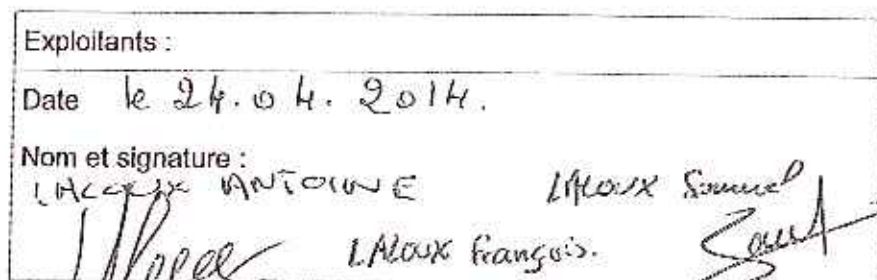 Exploitants :
Date le 24.04.2014.
Nom et signature :
LALOUX ANTOINE LALOUX Samuel
LALOUX François.